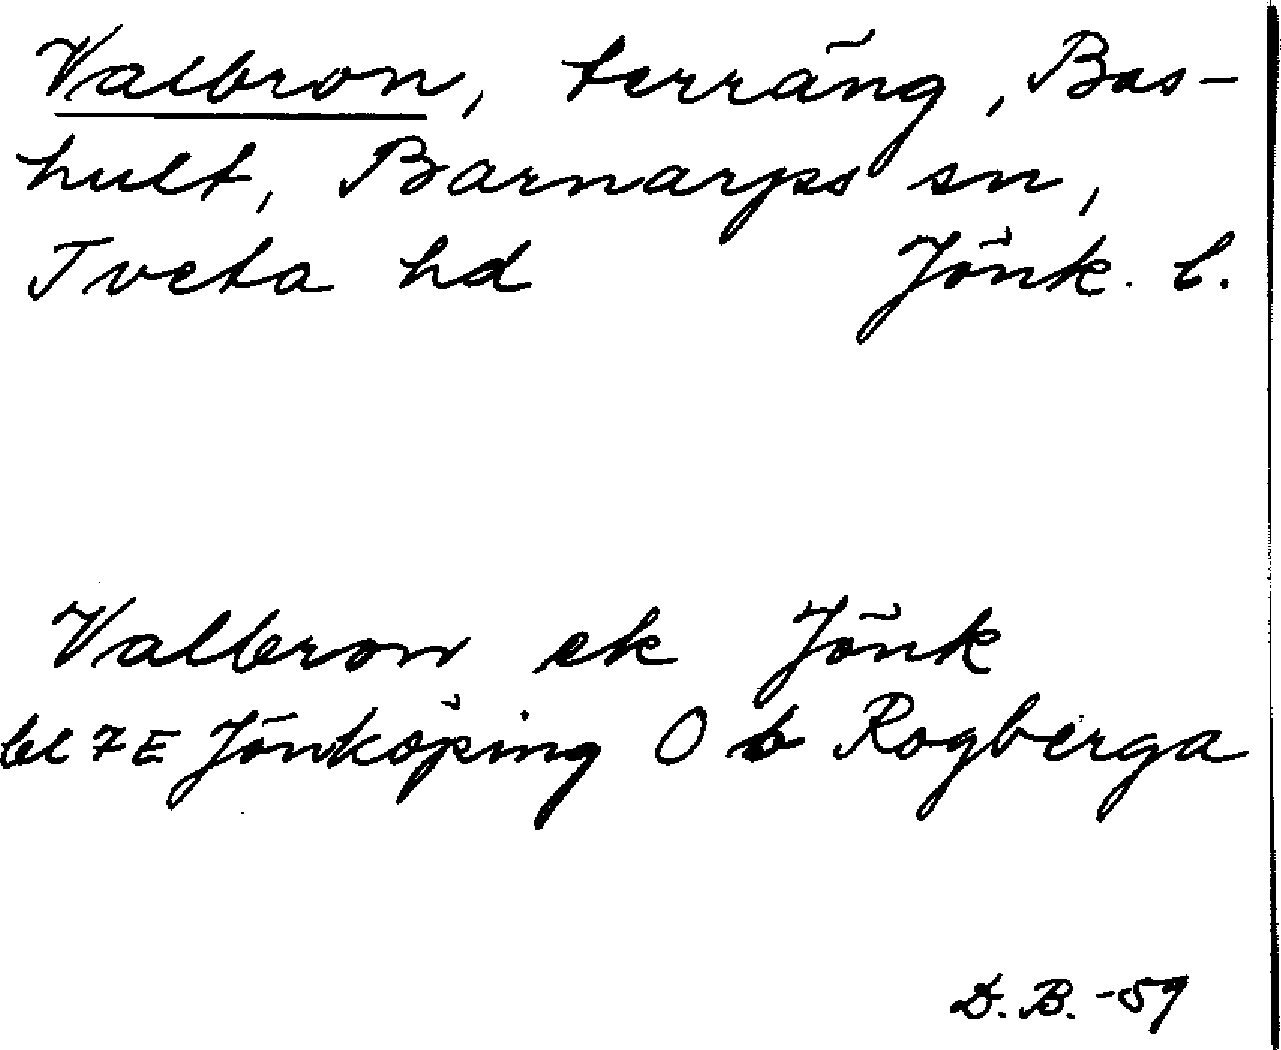 Valbron, terräng, Bas-
hult, Barnarps sn,
Tveta hd Jönk. l.
Valbron ek Jönk
bl 7E Jönköping O b Rogberga
D.B. -59